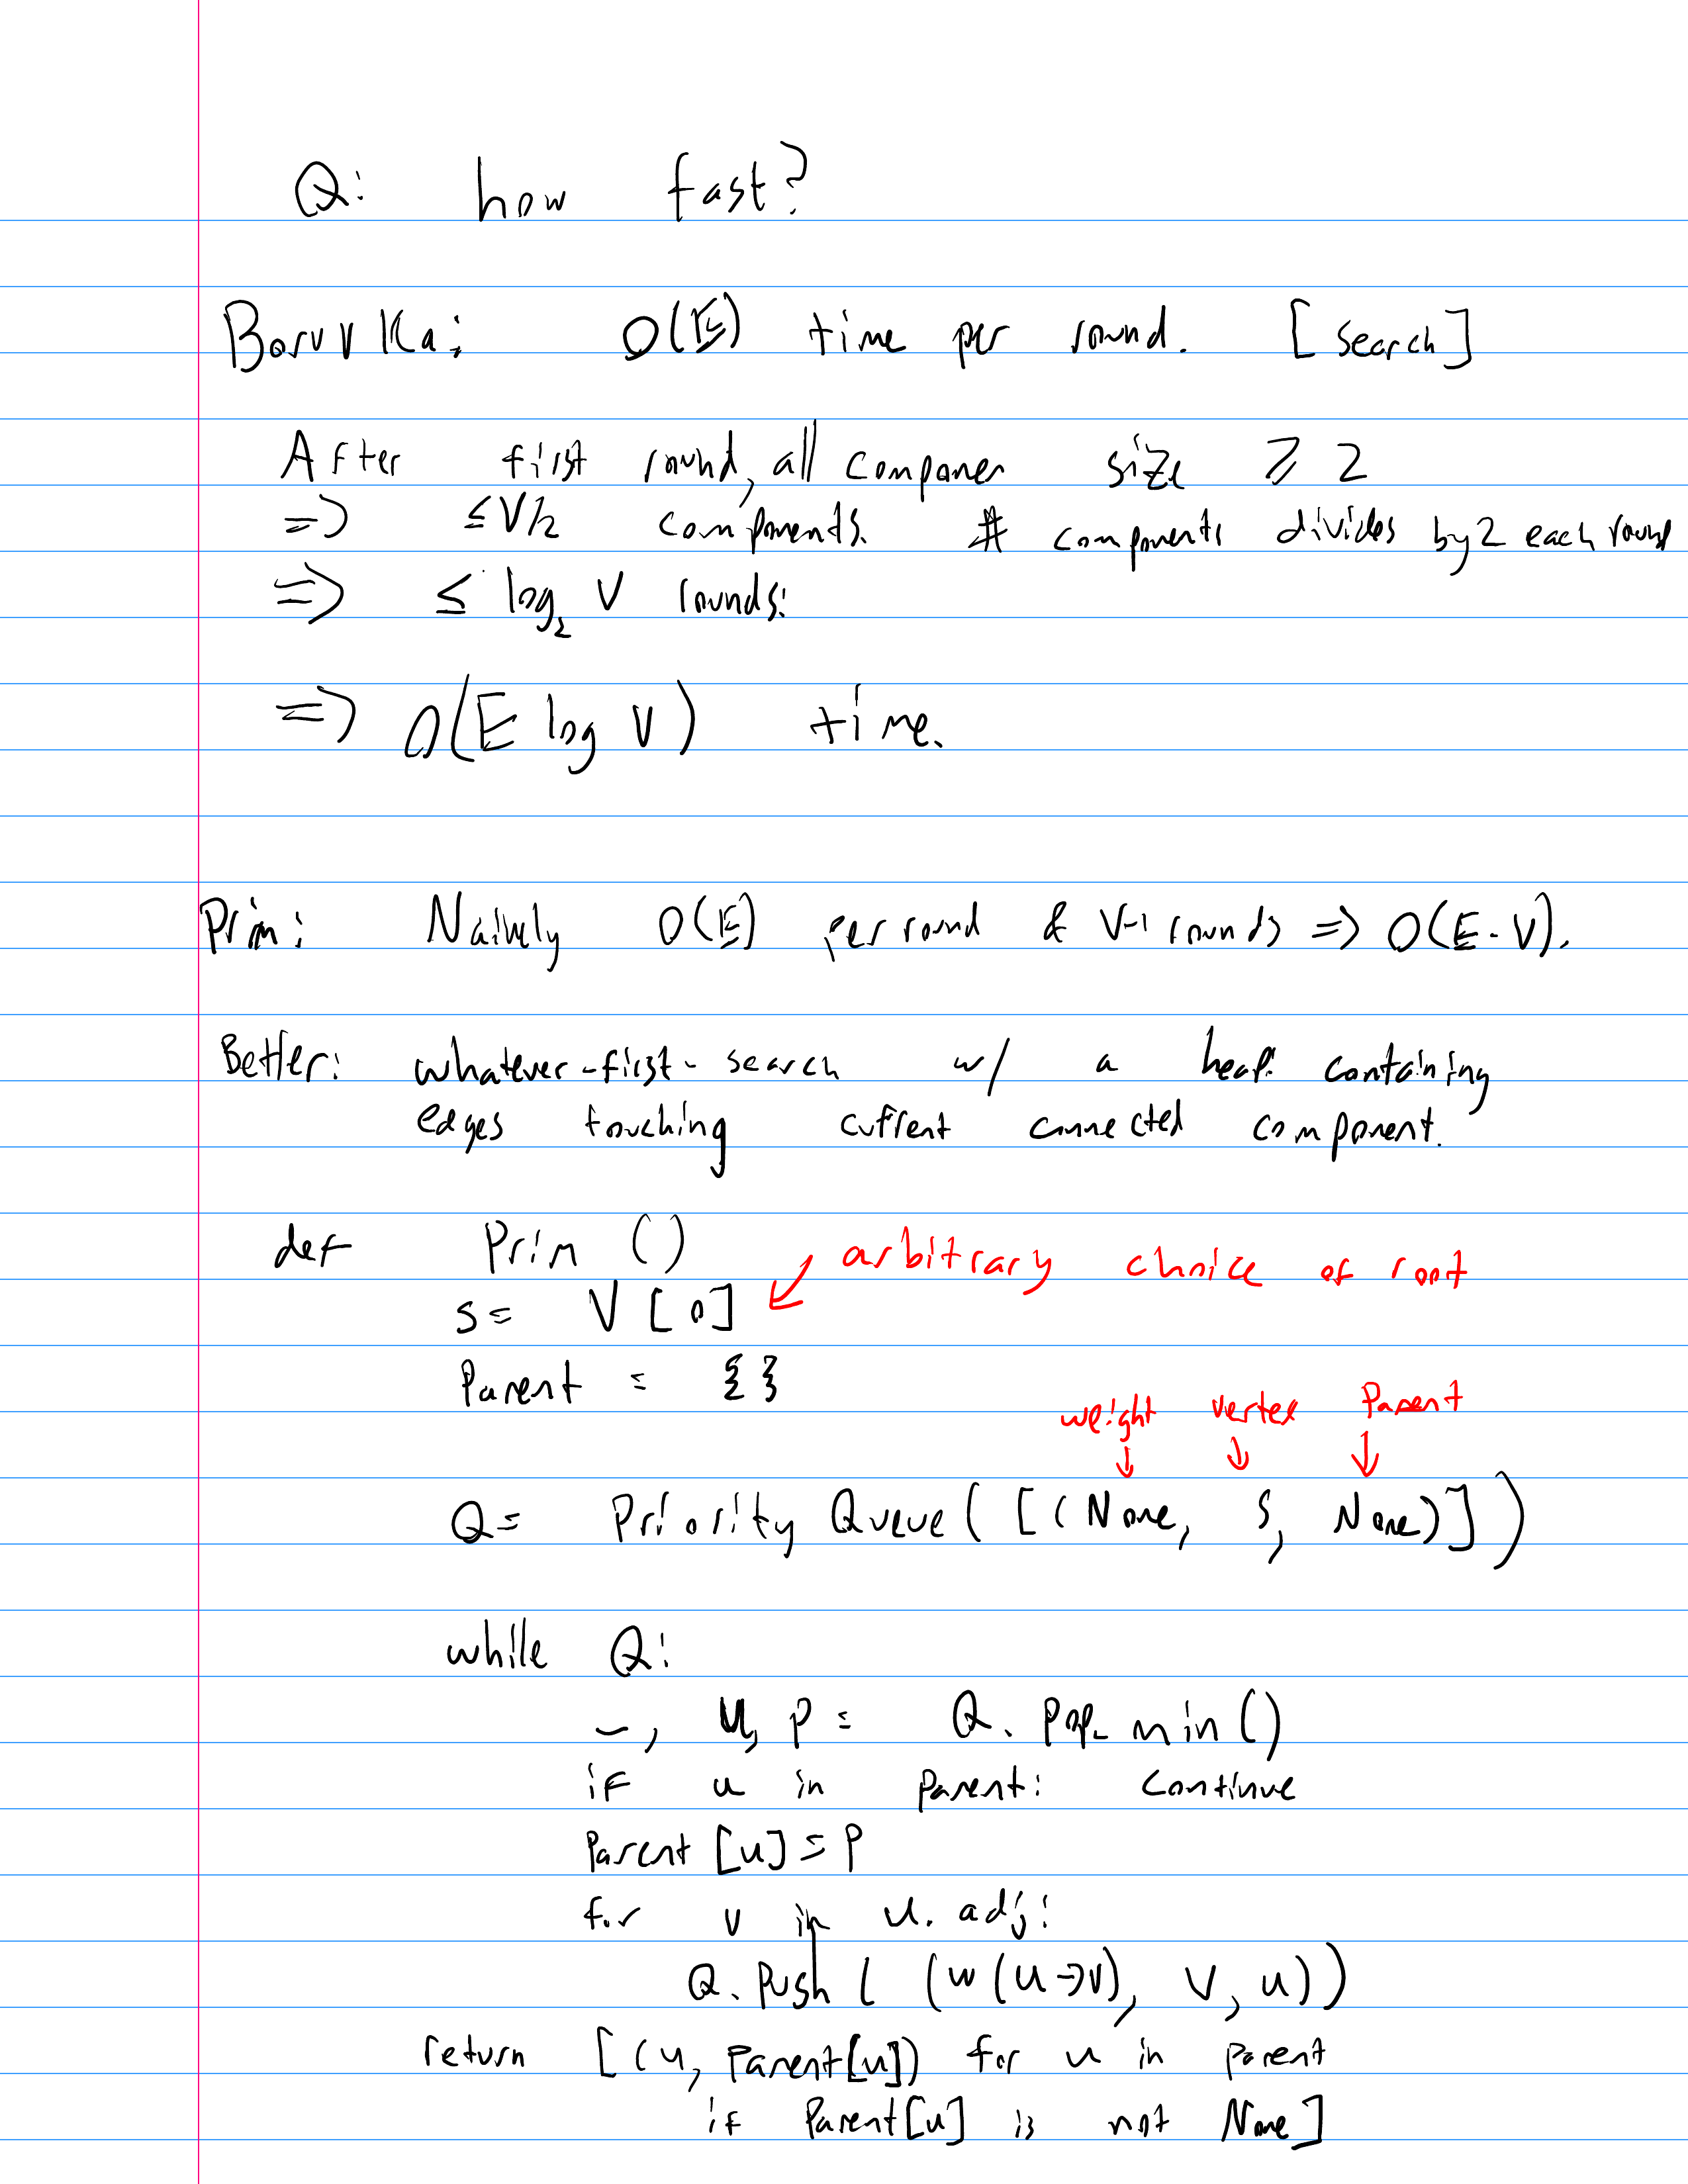 Q: how fast?
Boruvka: O(E) time per round. [search]
After first round, all componen size ≥ 2
=> ≤ V/2 components. # components divides by 2 each round
=> ≤ log₂ V rounds.
=> O(E log V) time.
Prim: Naively O(E) per round & V-1 rounds => O(E·V).
Better: whatever-first-search w/ a heap containing
edges touching current connected component.
def Prim ()
arbitrary choice of root
s = V[0]
Parent = {}
weight vertex Parent
Q = Priority Queue ([(None, s, None)])
while Q:
_, u, p = Q. pop_min()
if u in parent: continue
Parent[u] = p
for v in u. adj:
Q. Push ( (w(u→v), v, u))
return [(u, parent[u]) for u in parent
if Parent[u] is not None]